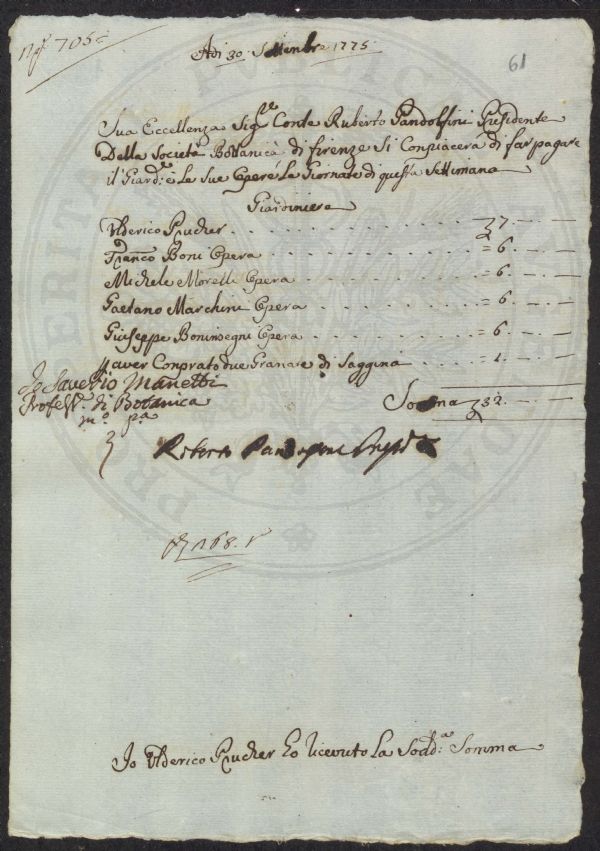 705
61
Adi 30 Settembre 1775
Sua Eccellenza Sigre Conte Ruberto Pandolfini Presidente
Della Società Bottanicà di firenze Si Conpiacera di far pagare
il Giard:e e Le Sue Opere La Giornate di questa Settimana
Giardiniere
Ulderico Prucher . . . . . . . . 7. — —
Franco Boni Opera . . . . . . . = 6. — —
Michele Morelli Opera . . . . . . . = 6. — —
Gaetano Marchini Opera . . . . . . = 6. — —
Giuseppe Boninsegni Opera . . . . . . = 6. — —
aver Conprato due Granate di Saggina . . . = 1. — —
Io Saverio Manetti
Profess.e di Botanica
mo pa
Somma 32. — —
Roberto Pandolfini Presid
168.
Io Ulderico Prucher Ho riceuto La Sodd:a Somma